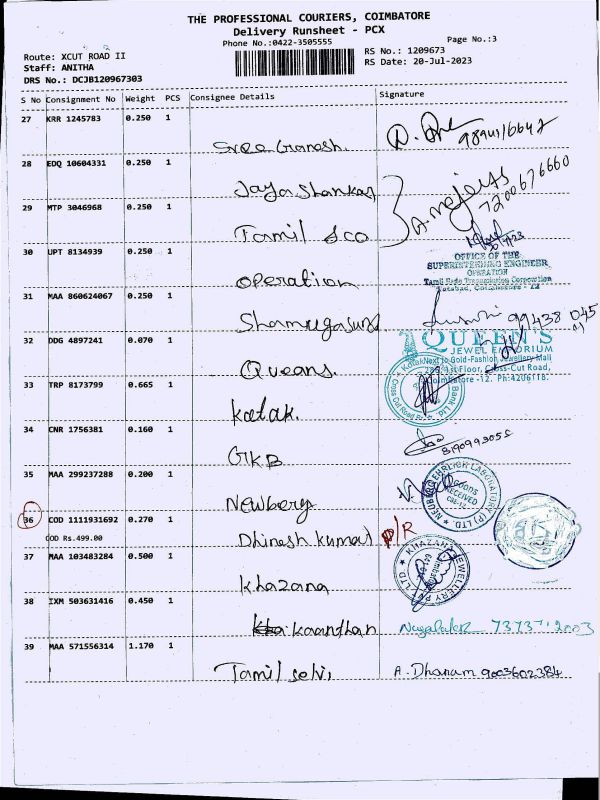 THE PROFESSIONAL COURIERS, COIMBATORE
Delivery Runsheet - PCX
Phone No.:0422-3505555
Page No.:3
Route: XCUT ROAD II
Staff: ANITHA
DRS No.: DCJB120967303
RS No.: 1209673
RS Date: 20-Jul-2023
S No Consignment No Weight PCS Consignee Details Signature
27 KRR 1245783 0.250 1
Sree Ganesh. 9894116647
28 EDQ 10604331 0.250 1
Jaya Shankar
7200676660
29 MTP 3046968 0.250 1
Tamil
30 UPT 8134939 0.250 1
OFFICE OF THE
SUPERINTENDING ENGINEER
OPERATION
operation
31 MAA 860624067 0.250 1
99438 045
32 DDG 4897241 0.070 1
QUEEN'S
JEWEL EMPORIUM
Next to Gold-Fashion Jewellery Mall
1st Floor, Cross-Cut Road,
Coimbatore -12. Ph:4206118.
Queans.
33 TRP 8173799 0.665 1
kotak.
34 CNR 1756381 0.160 1
GKB
35 MAA 299237288 0.200 1
GOODS
RECEIVED
Newbery
36 COD 1111931692 0.270 1
COD Rs.499.00
Dhinesh kumar P/R
37 MAA 103483284 0.500 1
KHAZANA JEWELLERY
khazana
38 IXM 503631416 0.450 1
kaandhan
39 MAA 571556314 1.170 1
Tamil selvi, A. Dhanam 9003602384